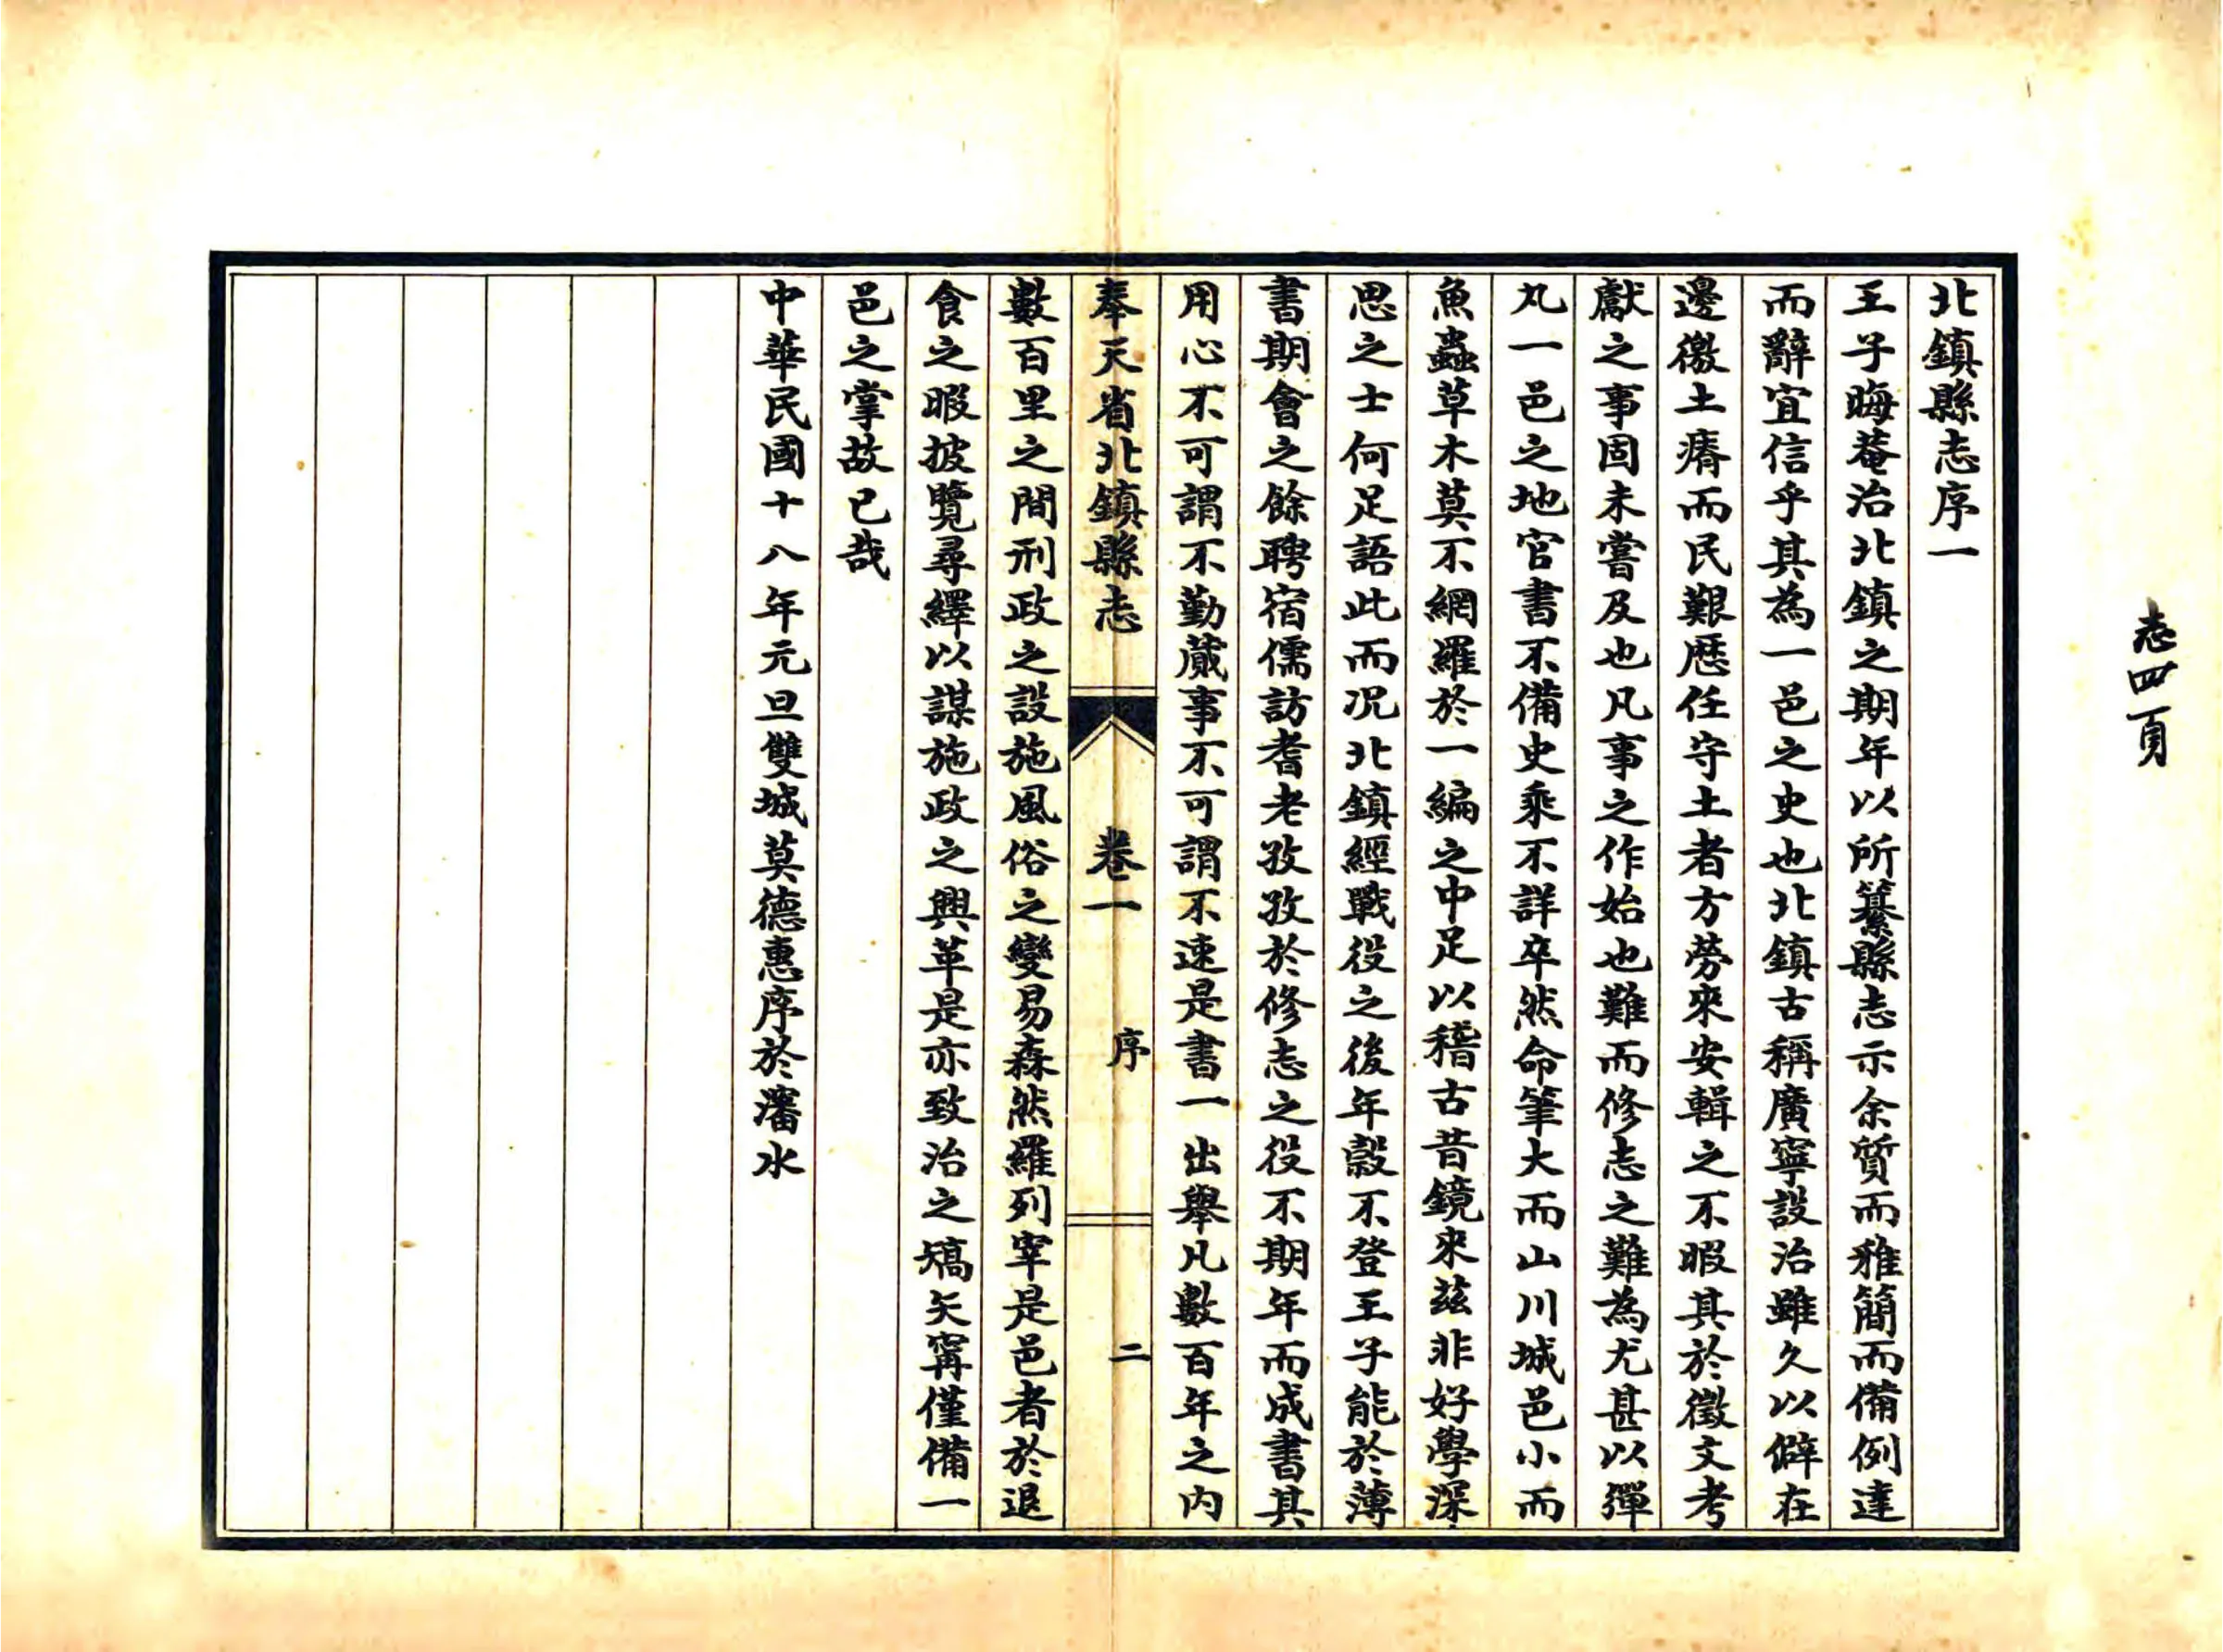 志四頁
北鎮縣志序一
王子晦菴治北鎮之期年以所纂縣志示余質而雅簡而備例達
而辭宜信乎其為一邑之史也北鎮古稱廣寧設治雖久以僻在
邊徼土瘠而民艱歷任守土者方勞來安輯之不暇其於徵文考
獻之事固未嘗及也凡事之作始也難而修志之難為尤甚以彈
丸一邑之地官書不備史乘不詳卒然命筆大而山川城邑小而
魚蟲草木莫不網羅於一編之中足以稽古昔鏡來茲非好學深
思之士何足語此而况北鎮經戰役之後年穀不登王子能於薄
書期會之餘聘宿儒訪耆老孜孜於修志之役不期年而成書其
用心不可謂不勤蕆事不可謂不速是書一出舉凡數百年之內
奉天省北鎮縣志 卷一 序 二
數百里之間刑政之設施風俗之變易森然羅列宰是邑者於退
食之暇披覽尋繹以謀施政之興革是亦致治之矯矢寗僅備一
邑之掌故已哉
中華民國十八年元旦雙城莫德惠序於瀋水